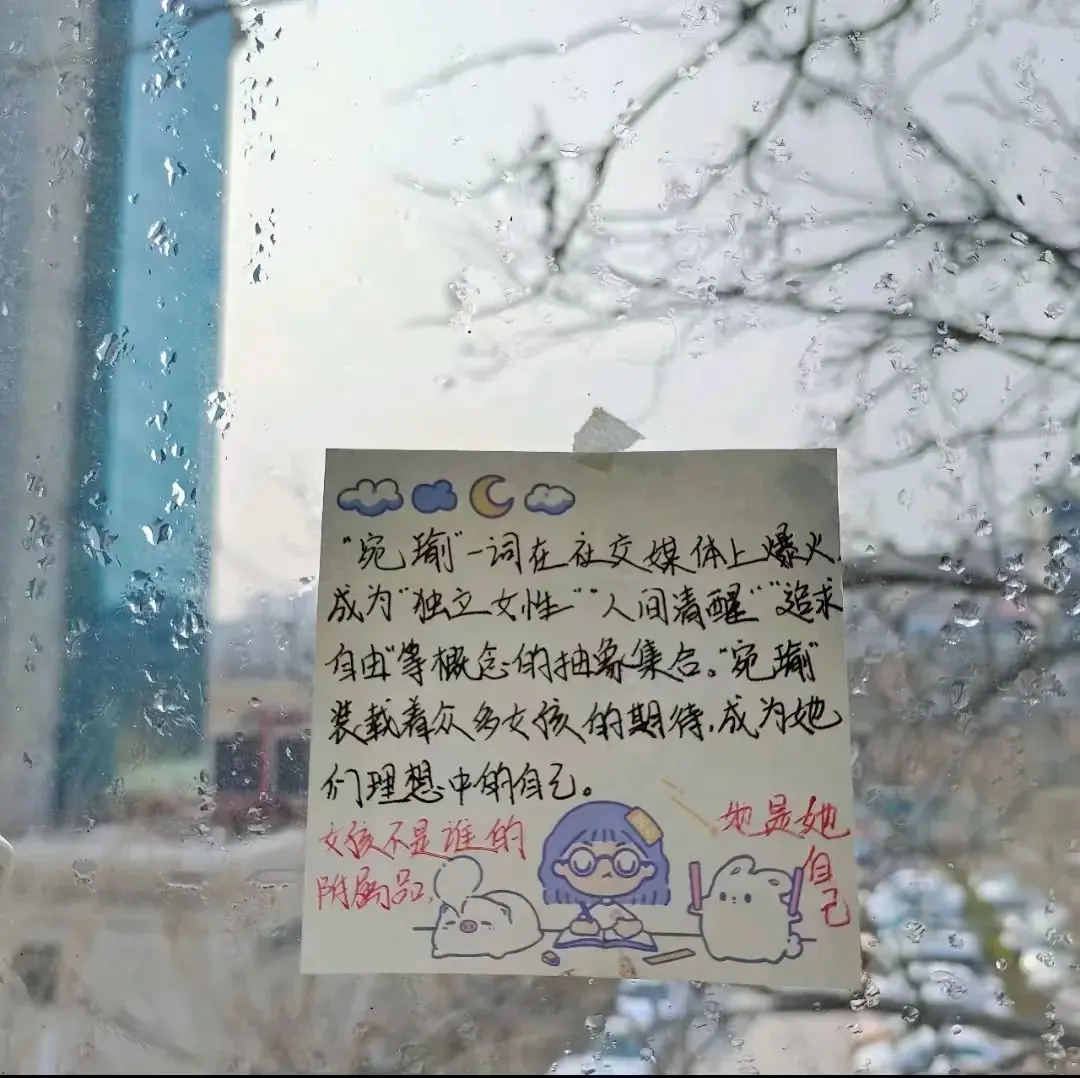 “宛瑜”一词在社交媒体上爆火，
成为“独立女性”“人间清醒”“追求
自由”等概念的抽象集合。“宛瑜”
装载着众多女孩的期待，成为她
们理想中的自己。
女孩不是谁的
附属品，
她是她
自己